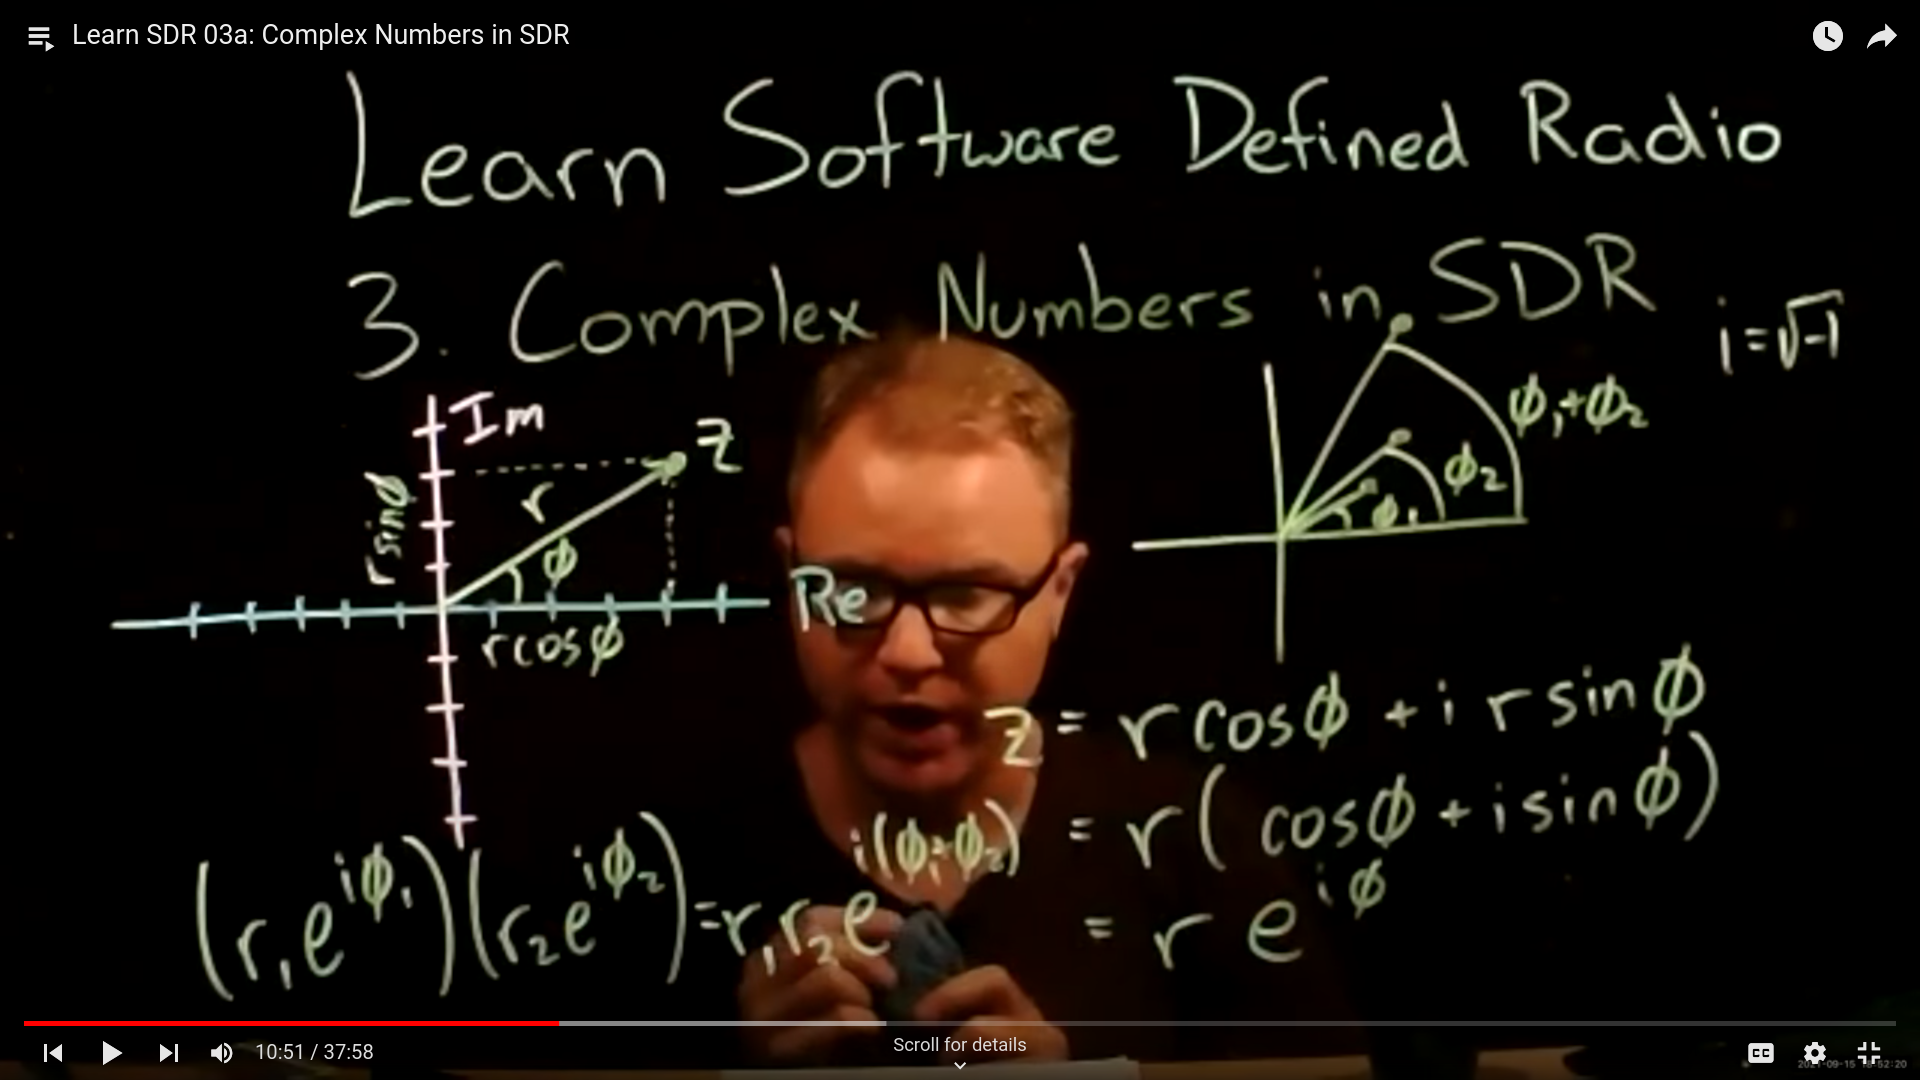 Learn SDR 03a: Complex Numbers in SDR
Learn Software Defined Radio
3. Complex Numbers in SDR
i=√-1
Im
z
r
ϕ
r sinϕ
Re
r cosϕ
ϕ₁+ϕ₂
ϕ₂
ϕ₁
z = r cosϕ + i r sinϕ
= r( cosϕ + i sinϕ)
= r e^{iϕ}
(r₁e^{iϕ₁})(r₂e^{iϕ₂})=r₁r₂e^{i(ϕ₁+ϕ₂)}
10:51 / 37:58
Scroll for details
CC